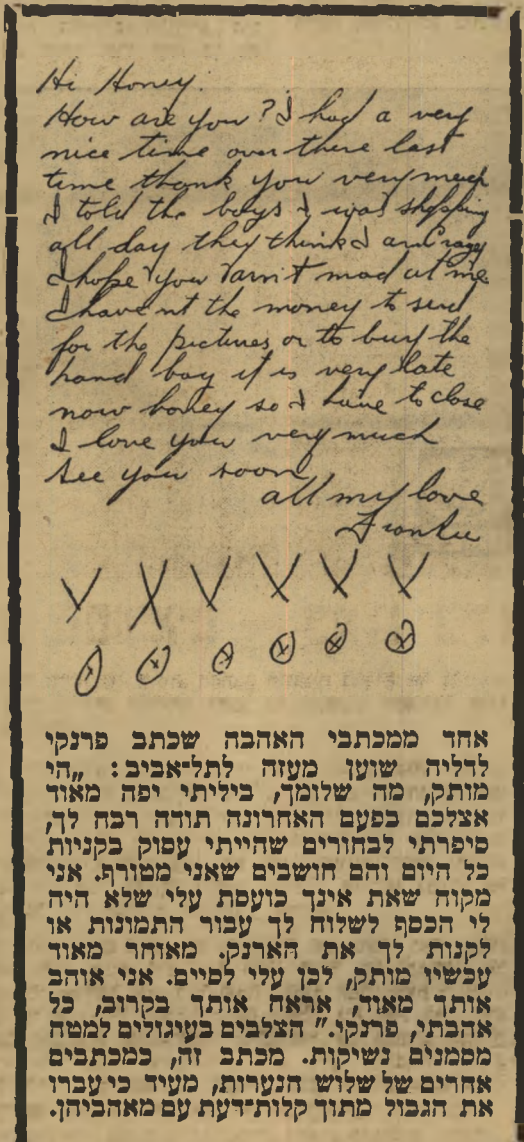 Hi Honey.
How are you? I had a very
nice time over there last
time thank you very much
I told the boys I was shopping
all day they think I am Crazy
I hope you arn't mad at me
I havent the money to send
for the pictures or to buy the
hand bag it is very late
now honey so I have to close
I love you very much
See you soon
all my love
Frankie
אחד ממכתבי האהבה שכתב פרנקי
לדליה שוען מעזה לתל־אביב: „הי
מותק, מה שלומך, ביליתי יפה מאוד
אצלכם בפעם האחרונה תודה רבה לך,
סיפרתי לבחורים שהייתי עסוק בקניות
כל היום והם חושבים שאני מטורף. אני
מקוה שאת אינך כועסת עלי שלא היה
לי הכסף לשלוח לך עבור התמונות או
לקנות לך את הארנק. מאוחר מאוד
עכשיו מותק, לכן עלי לסיים. אני אוהב
אותך מאוד, אראה אותך בקרוב, כל
אהבתי, פרנקי." הצלבים בעיגולים למטה
מסמנים נשיקות. מכתב זה, כמכתבים
אחרים של שלוש הנערות, מעיד כי עברו
את הגבול מתוך קלות־דעת עם מאהביהן.